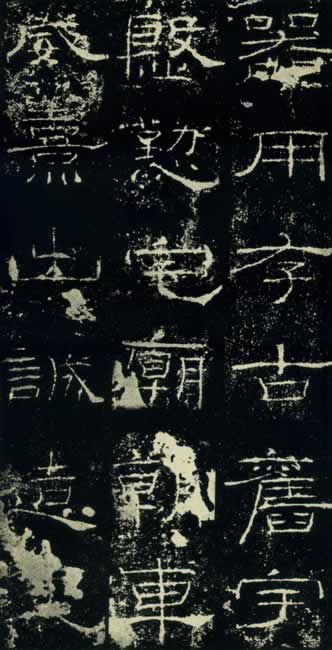 器用存古舊宇
殷懃宅廟朝車
威熹出誠造